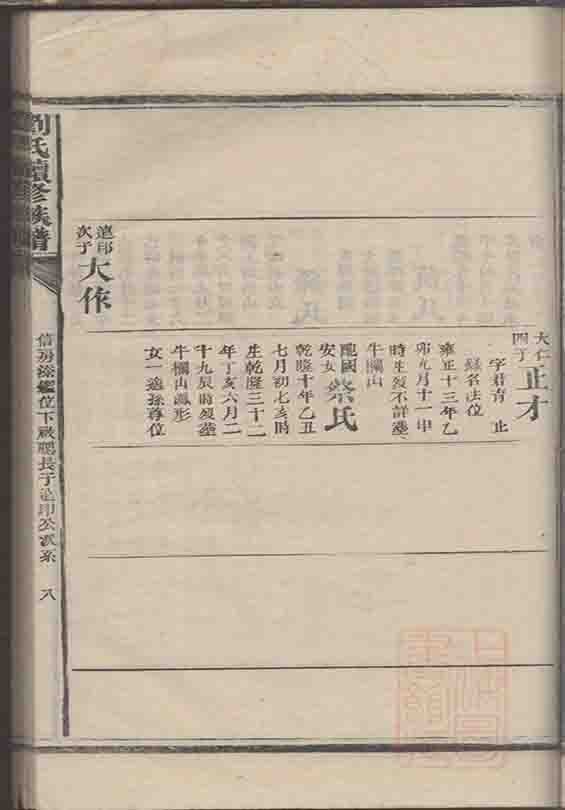 大仁
四子 正才
字君育 止
錄名法位
雍正十三年乙
卯九月十一申
時生歿不詳塟
牛欄山
配國 蔡氏
安女
乾隆十年乙丑
七月初七亥時
生乾隆三十二
年丁亥六月二
十九辰時歿塟
牛欄山鳳形
女一適孫尊位
邕印
次子 大作
劉氏續修族譜
下嚴
長子
公
八